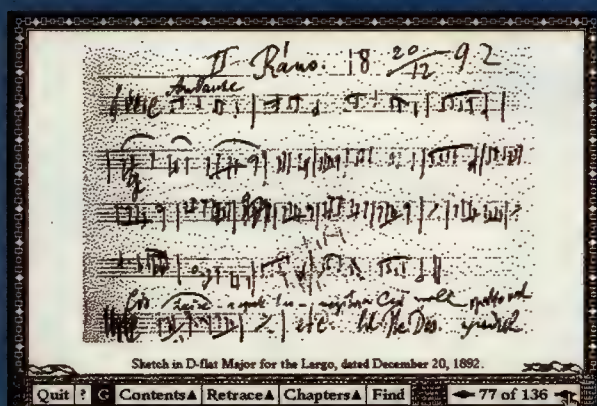 II Ráno. 18 20/12 92
Andante
etc.
Sketch in D-flat Major for the Largo, dated December 20, 1892.
Quit ? G Contents▲ Retrace▲ Chapters▲ Find 77 of 136